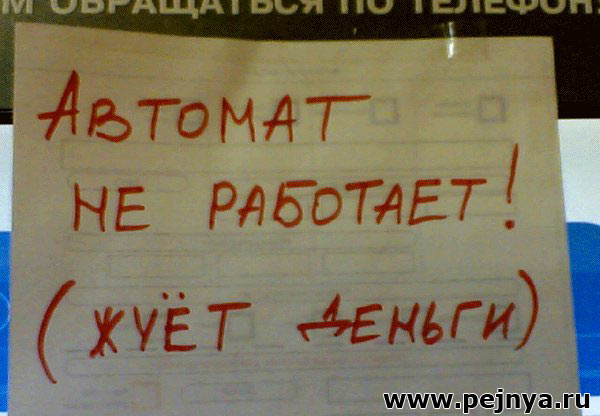 М ОБРАЩАТЬСЯ ПО ТЕЛЕФОН
АВТОМАТ
НЕ РАБОТАЕТ!
(ЖУЁТ ДЕНЬГИ)
www.pejnya.ru